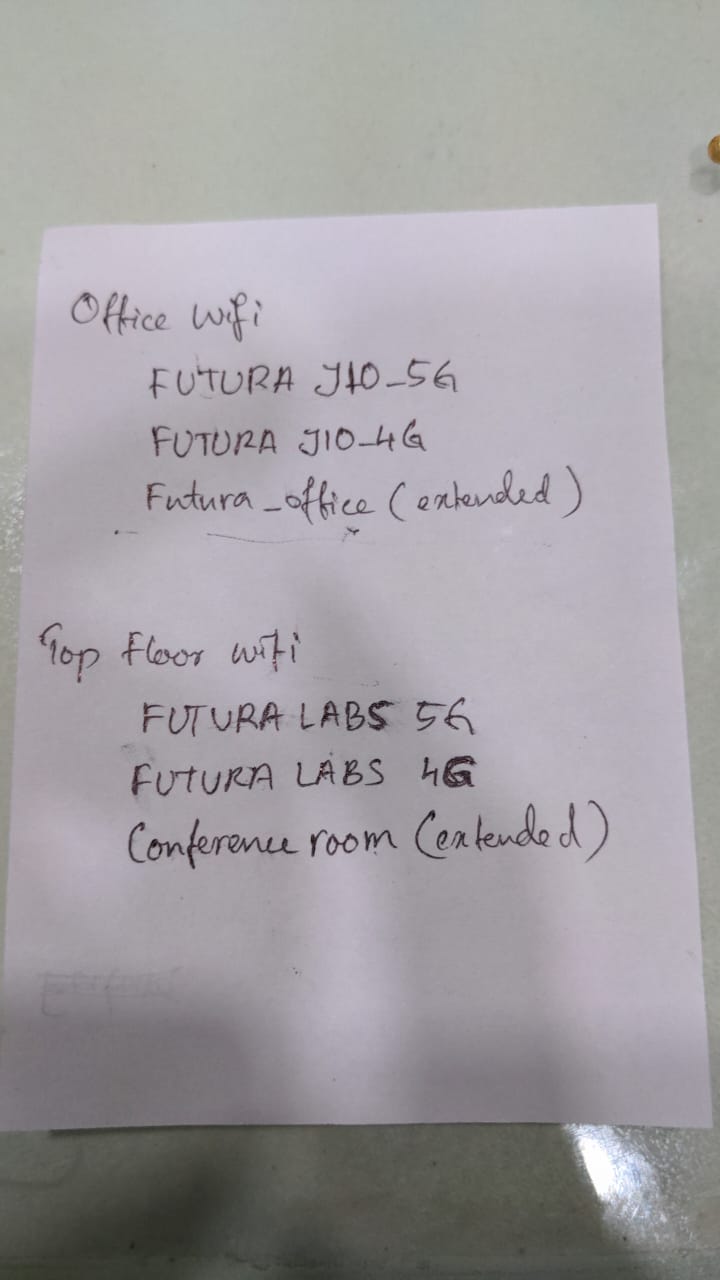 Office Wifi
FUTURA JIO_5G
FUTURA JIO_4G
Futura_office (extended)
Top Floor wifi
FUTURA LABS 5G
FUTURA LABS 4G
Conference room (extended)